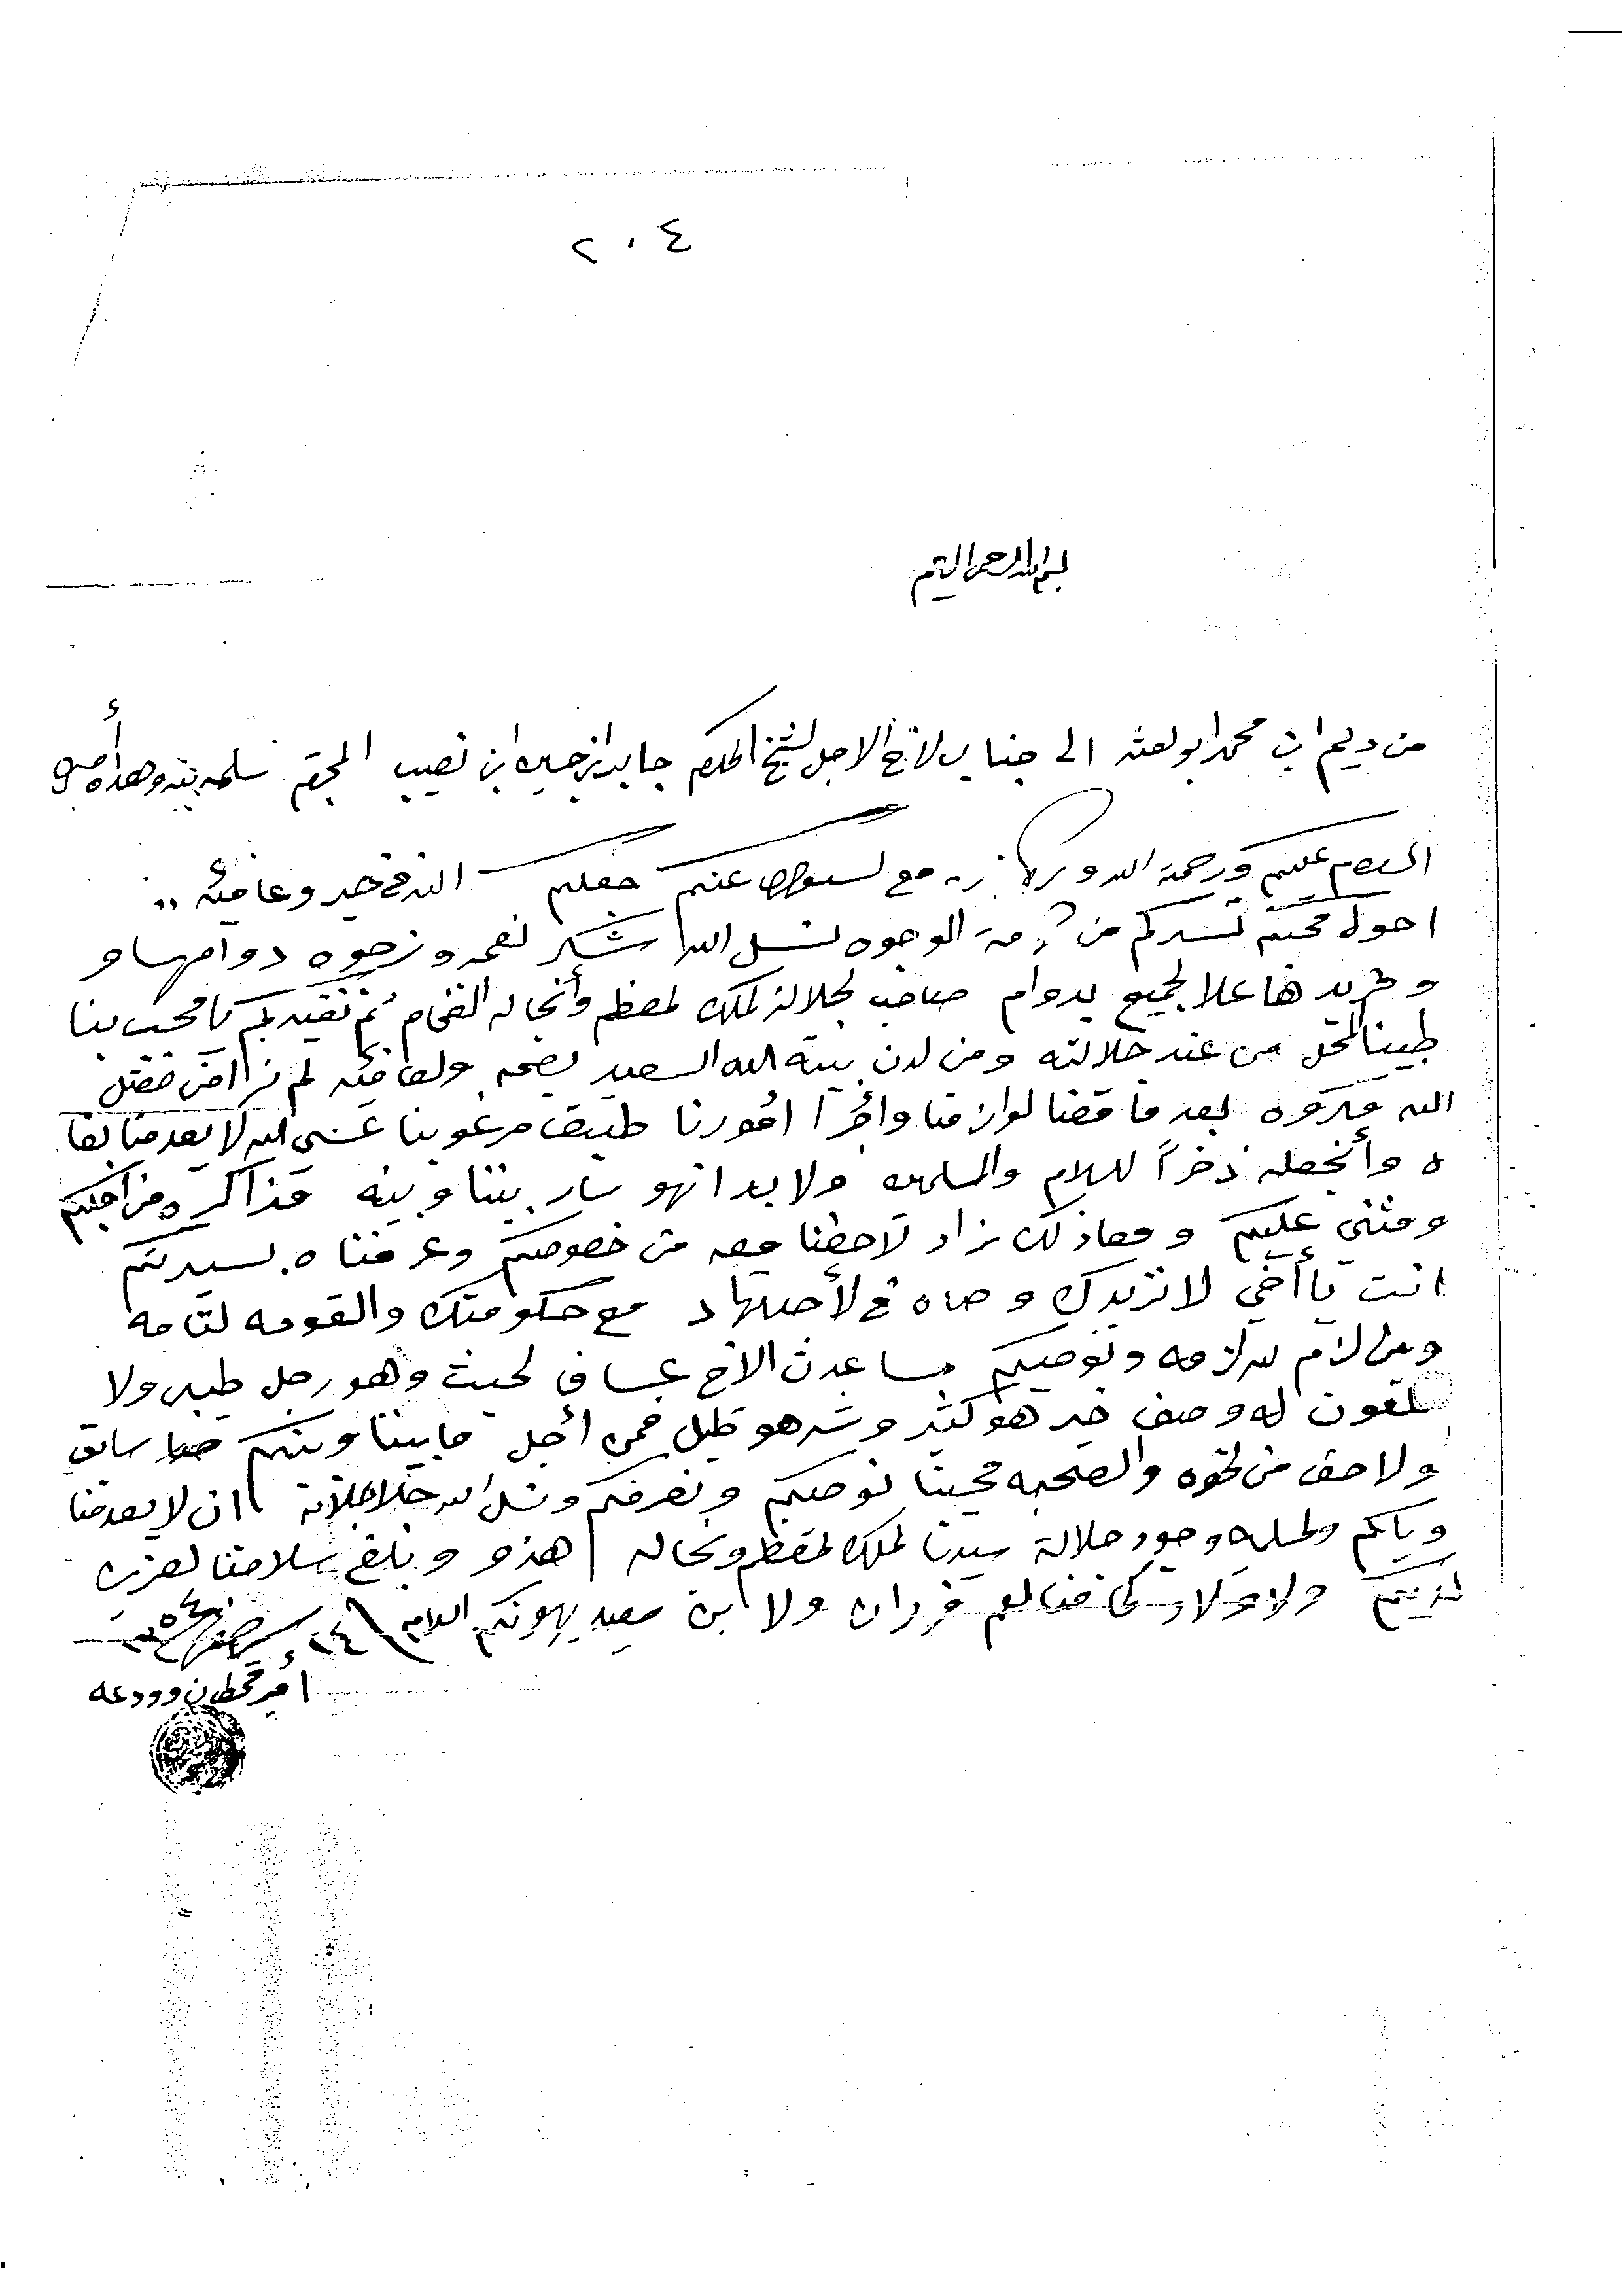 ٢٠٤
بسم الله الرحمن الرحيم
من دليم ابن محمد ابو لعثه الى جناب لاخ الاجل لشيخ المكرم جابر ابن حسين ابن نصيب المحترم سلمه الله وهداه أمين
السلام عليكم ورحمة الله وبركاته مع لسؤال عنكم جعلكم الله في خير وعافيه
احول محبكم تسركم من كرمة الوجوه نسل الله شكر نعمه ونرجوه دوامها و
ومزيدها علا لجميع بدوام صاحب لجلالة لملك لمعظم وأنجاله الفخام ثم نفيدكم يا محب بنا
طبنا لمحل من عند جلالته ومن لدن بيته الله السعيد بصحه ولعافيه لم نرا من فضل
الله مكروه بعد ما قضا لوازمنا وأجرا امورنا طبق مرغوبنا عسى الله لا يعدمنا بقا
ه وأنجعله ذخراً للسلام والمسلمين ولا بد انهو سار بيننا وبينه مذاكره من اجلكم
ومثني عليكم ومعاذلك نزاد لاحظنا معه من خصوصكم وعرفناه بسيرتكم
انت يا أخي لا نزيدك وصاه في لأجتهاد مع حكومتك والقومه لتامه
وبمن لزم للزمه ونوصيكم مساعدت الاخ عساف لحيث وهو رجل طيب ولا
تلقون له وصف خير هو كثير وشر هو قليل فمن أجل ما بيننا وبينكم سابق
ولا حق من لخوه والصحبه محبينا نوصيكم ونعرفكم ونسل الله جلا جلاله ان لا يعدمنا
وياكم ولمسلمين وجود جلالة سيدنا لملك لمعظم ونجاله هذو وبلغ سلامنا لعزيز
لديكم ولاولاد كما منا لعم فردان ولا ابن سعيد يهدونكم السلام ٢٤ صفر
امير قحطان وودعه